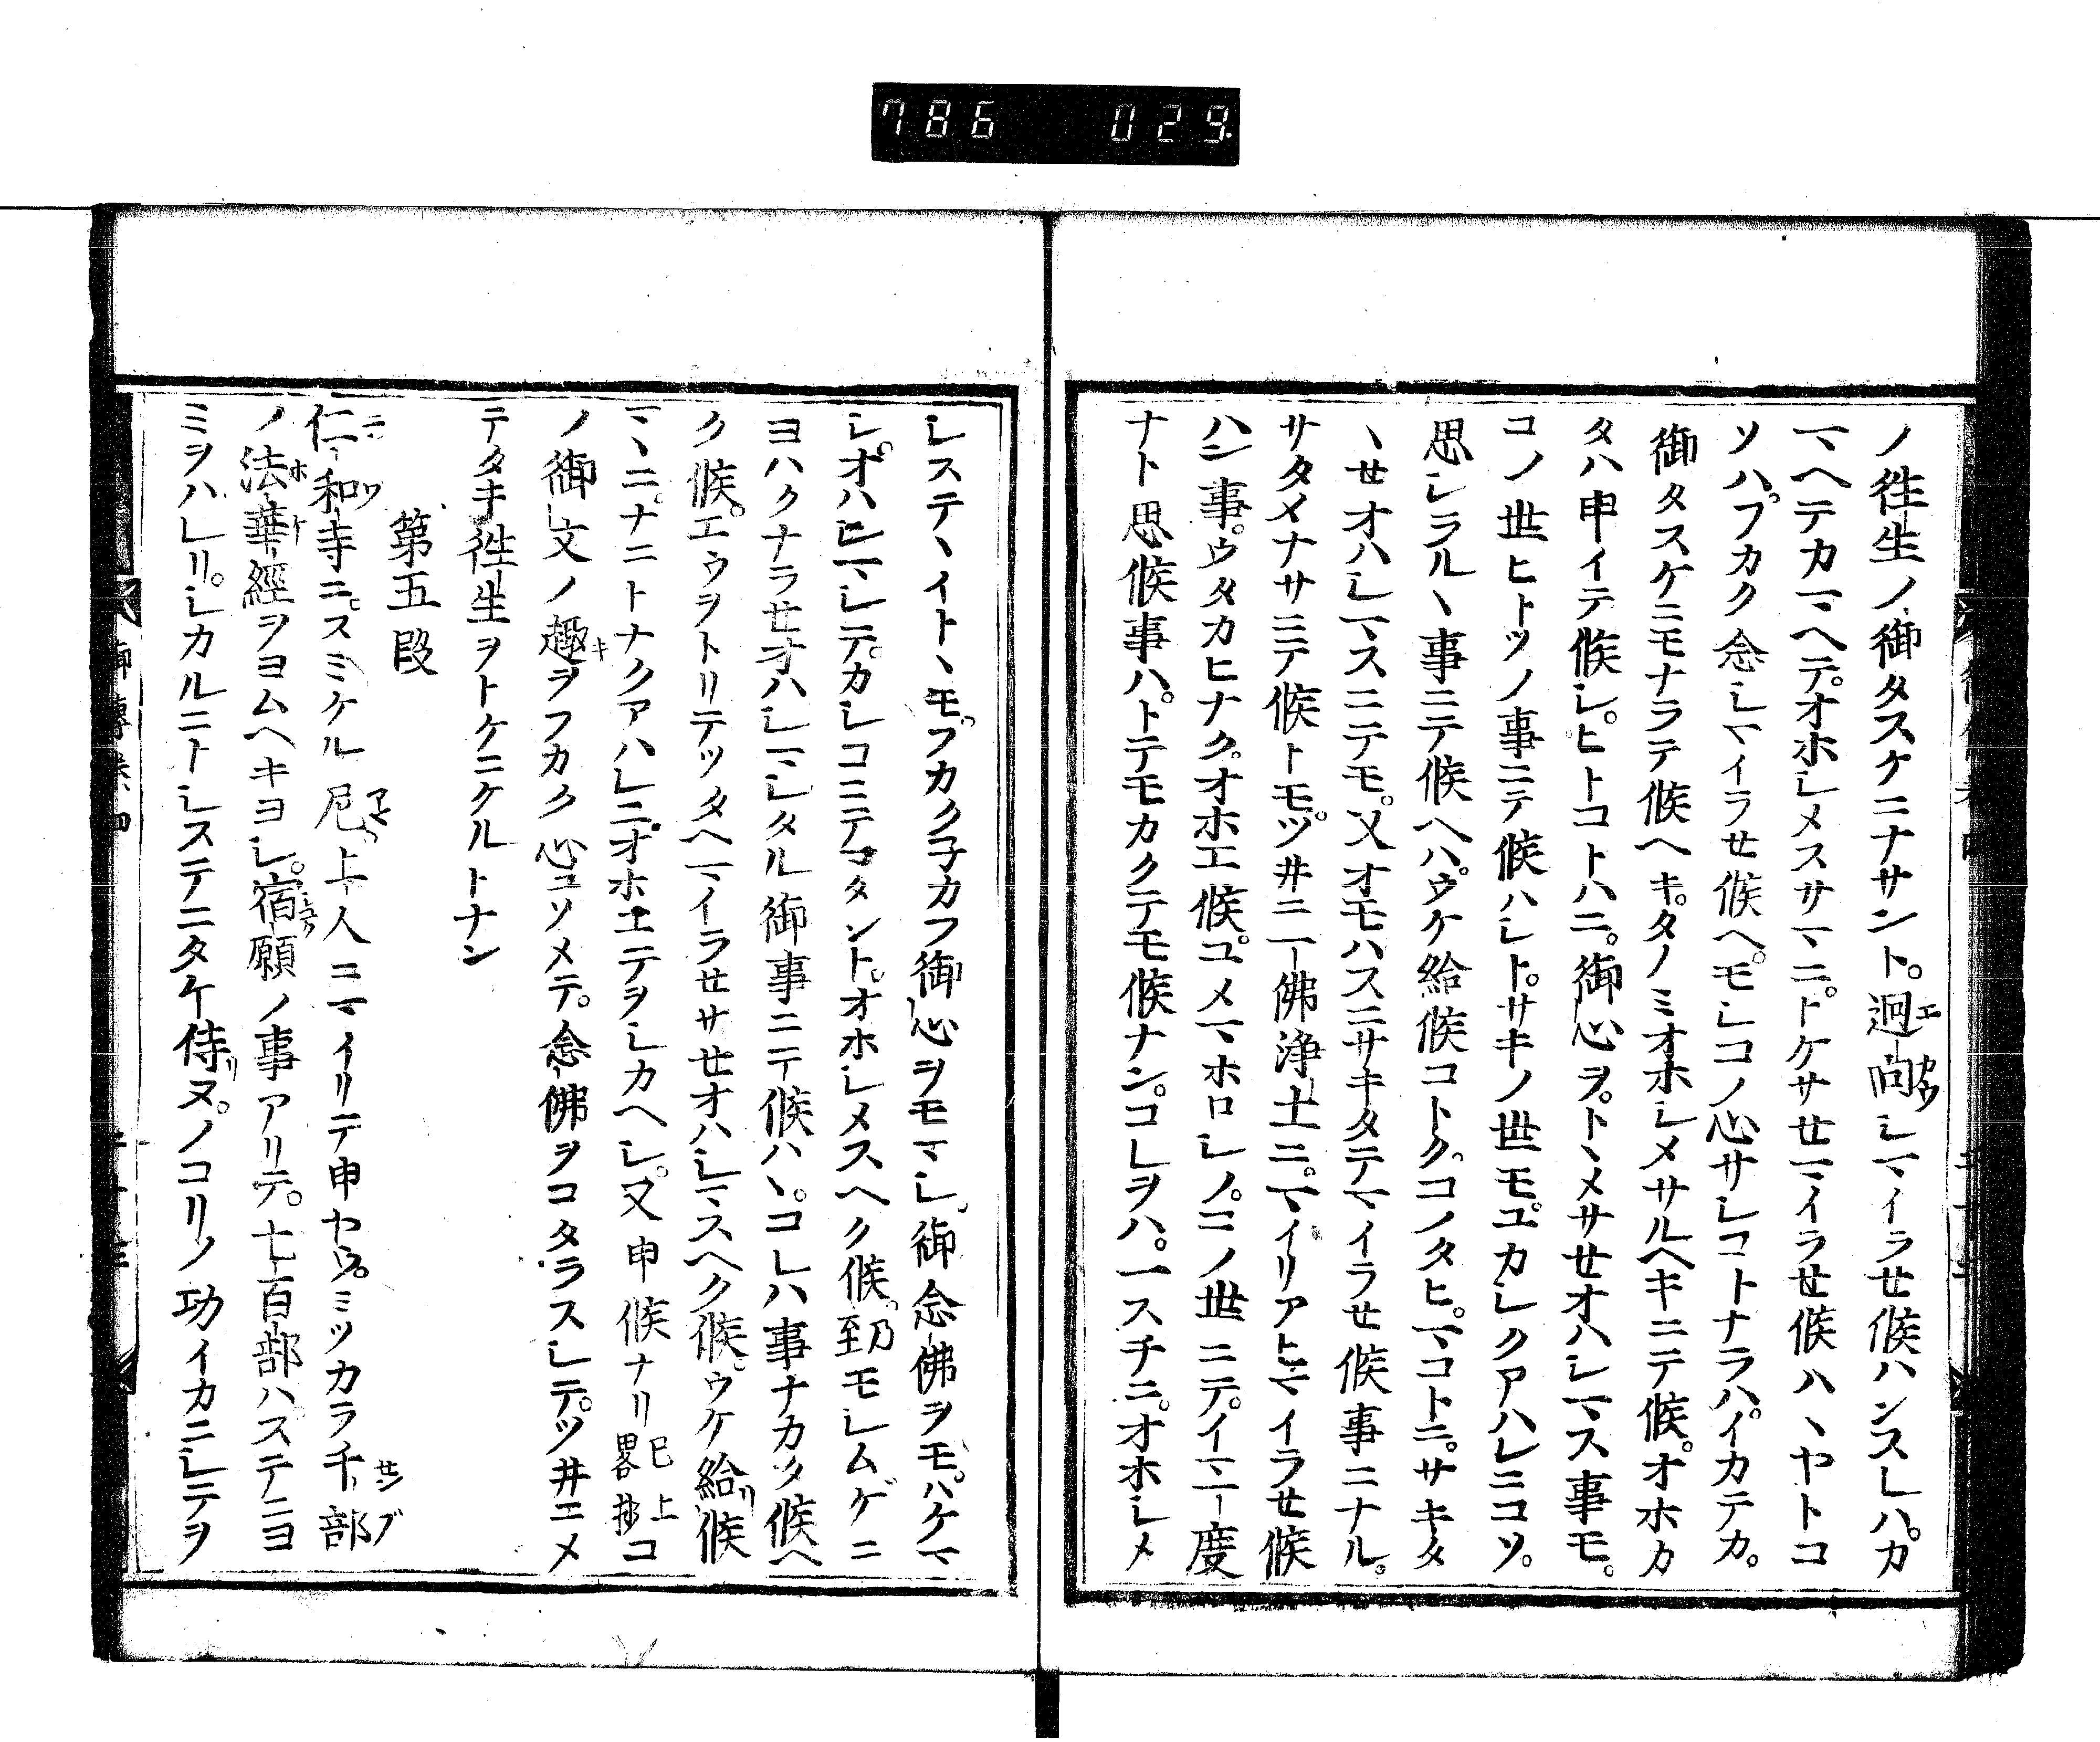 786 029
ノ徃生ノ御タスケニナサント。迴向シマイラセ候ハンスレハ。カ
マヘテカマヘテ。オホシメスサマニ。トケサセマイラセ候ハヽヤトコ
ソハ。フカク念シマイラセ候ヘ。モシコノ心サシコトナラハ。イカテカ。
御タスケニモナラテ候ヘキ。タノミオホシメサルヘキニテ候。オホカ
タハ申イテ候シ。ヒトコトハニ。御心ヲ。トヽメサセオハシマス事モ。
コノ世ヒトツノ事ニテ候ハシト。サキノ世モ。ユカシクアハレニコソ。
思シラルヽ事ニテ候ヘハ。ウケ給候コトク。コノタヒ。マコトニ。サキタ
ヽセオハシマスニテモ。又オモハスニサキタテマイラセ候事ニナル。
サタメナサニテ候トモ。ツ井ニ一佛浄土ニ。マイリアヒマイラセ候
ハン事。ウタカヒナク。オホエ候。ユメマホロシノ。コノ世ニテ。イマ一度
ナト思候事ハ。トテモカクテモ候ナン。コレヲハ。一スチニ。オホシメ
システヽイトヽモ。フカク子カフ御心ヲモマシ。御念佛ヲモ。ハケマ
シ。オハシマシテ。カシコニテマタント。オホシメスヘク候。返〻モシムゲニ
ヨハクナラセオハシマシタル御事ニテ候ハヽ。コレハ事ナカク候ヘ
ク候。エウヲトリテツタヘマイラセサセオハシマスヘク候。ウケ給リ候
マヽニ。ナニトナクアハレニ。オホエテヲシカヘシ。又申候ナリ已上畧抄コ
ノ御文ノ趣キヲフカク心ニソメテ。念佛ヲコタラスシテ。ツ井ニメ
テタキ徃生ヲトケニケルトナン
第五段
仁和寺ニ。スミケル尼。上人ニマイリテ申ヤウ。ミツカラ千部
ノ法華經ヲヨムヘキヨシ。宿願ノ事アリテ。七百部ハステニヨ
ミヲハレリ。シカルニトシステニタケ侍リヌ。ノコリノ功イカニシテヲ